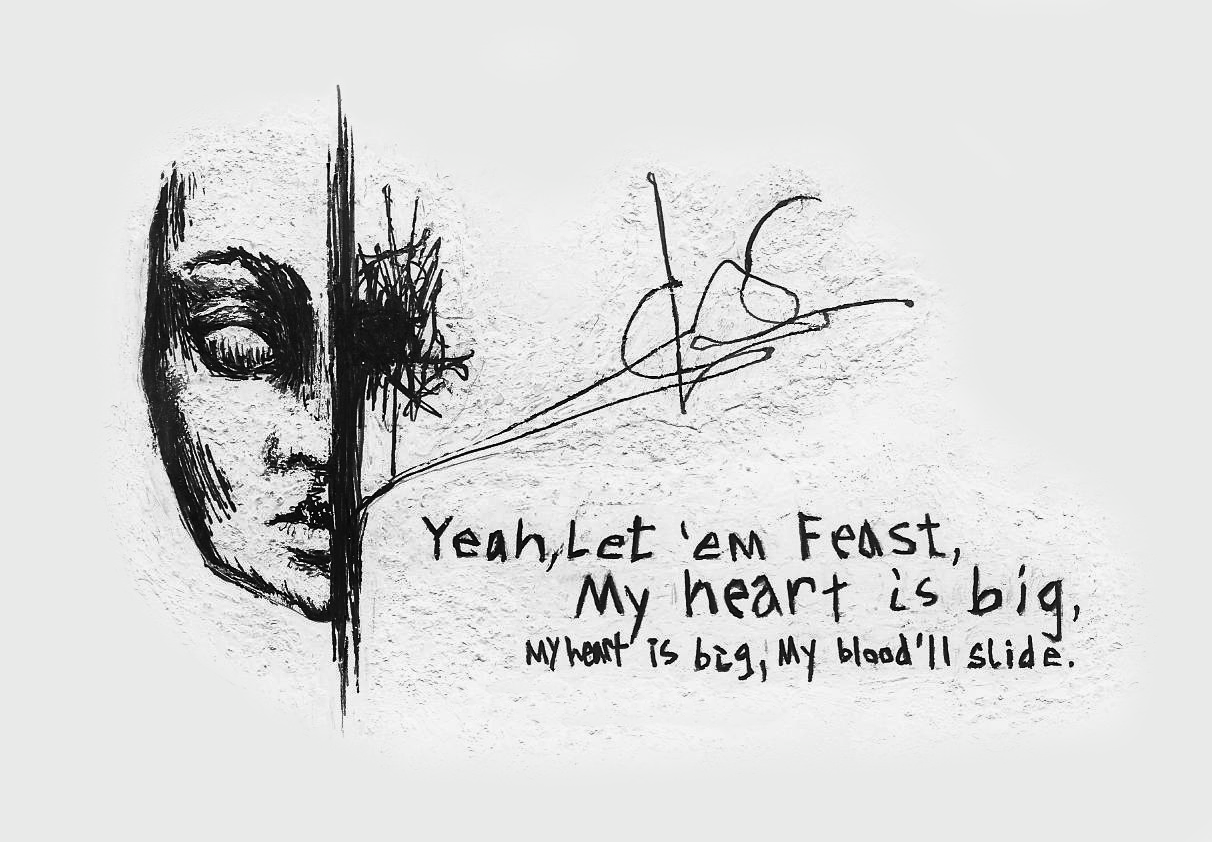 Yeah, Let 'em Feast,
My heart is big,
My heart is big, My blood'll slide.